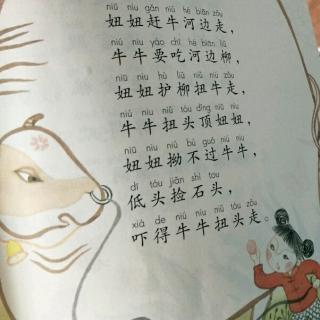 niū niu gǎn niú hé biān zǒu
妞妞赶牛河边走，
niú niu yào chī hé biān liǔ
牛牛要吃河边柳，
niū niu hù liǔ niǔ niú zǒu
妞妞护柳扭牛走，
niú niu niǔ tóu dǐng niū niu
牛牛扭头顶妞妞，
niū niu niù bú guò niú niu
妞妞拗不过牛牛，
dī tóu jiǎn shí tou
低头捡石头，
xià de niú niu niǔ tóu zǒu
吓得牛牛扭头走。